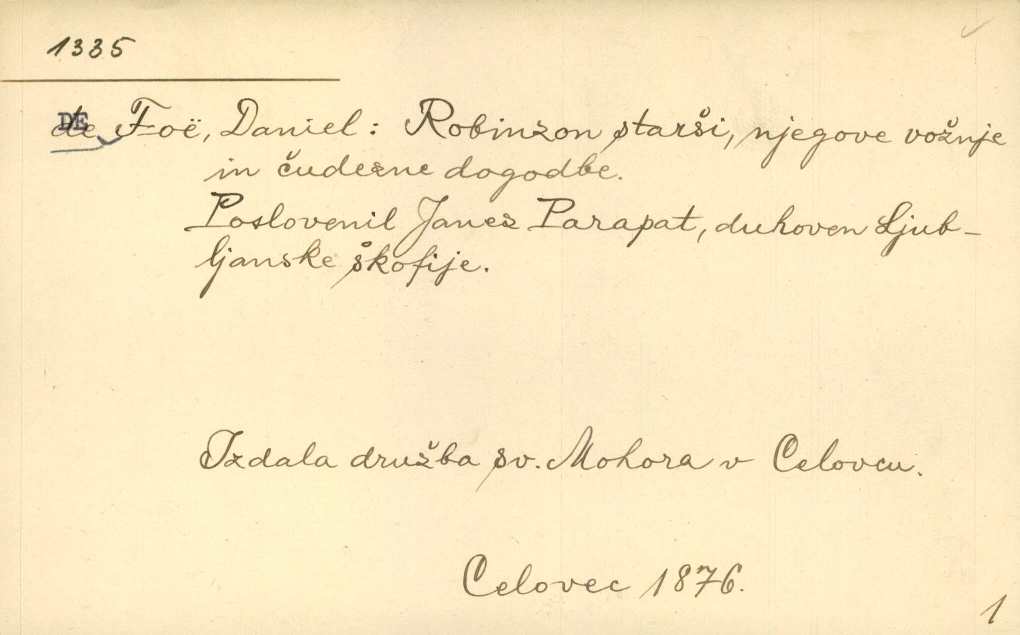 1335
DE Foë, Daniel: Robinzon starši, njegove vožnje
in čudezne dogodbe.
Poslovenil Janez Parapat, duhoven Ljub-
ljanske škofije.
Izdala družba sv. Mohora v Celovcu.
Celovec 1876.
1